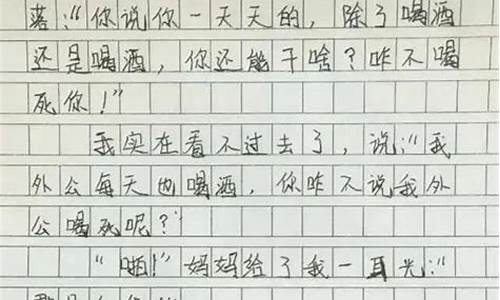 落：“你说你一天天的，除了喝酒
还是喝酒，你还能干啥？咋不喝
死你！”
我实在看不过去了，说：“我
外公每天也喝酒，你咋不说我外
公喝死呢？”
“啪！”妈妈给了我一耳光：“